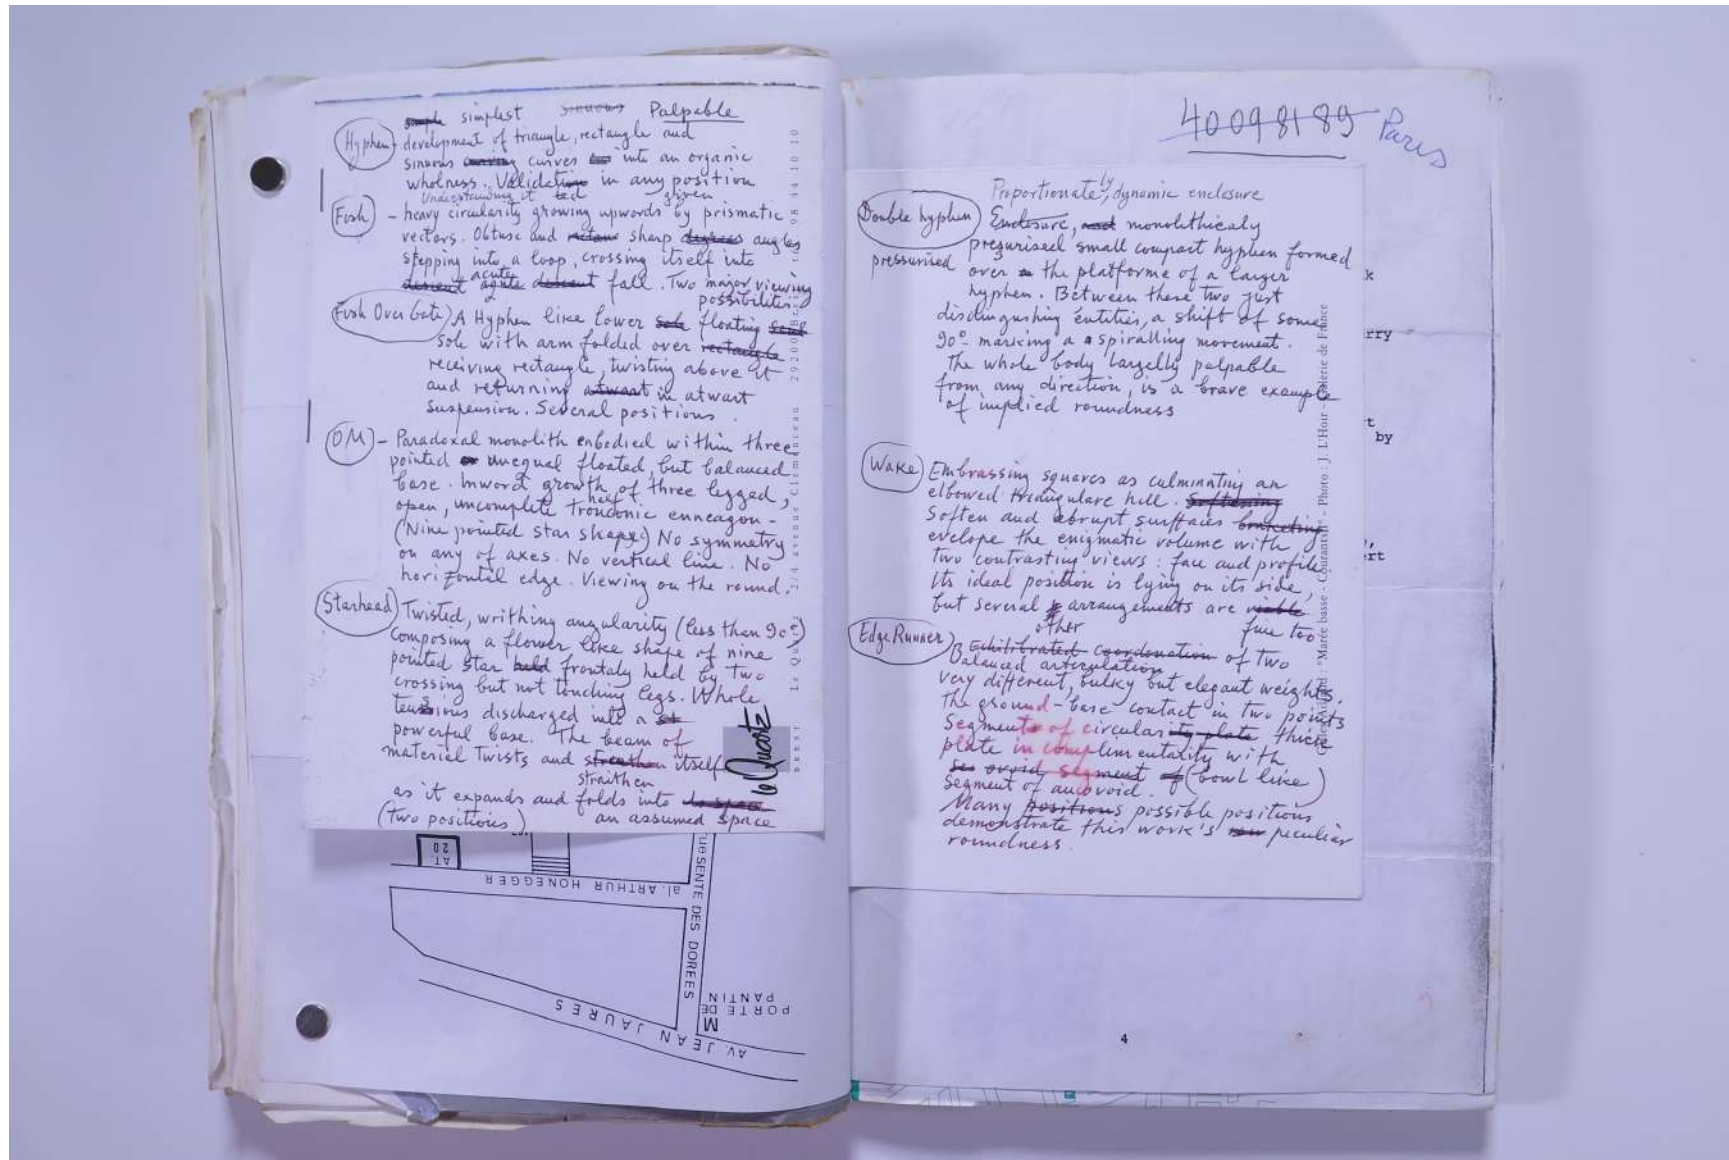 simple simplest sinuous Palpable
Hyphen - development of triangle, rectangle and
sinuous curving curves into an organic
wholness. Validation in any position
Understanding it ted given
Fish - heavy circularity growing upwords by prismatic
vectors. Obtuse and sharp degrees angles
stepping into a loop, crossing itself into
descent acute descent fall. Two major viewing
possibilities
Fish Over Gate) A Hyphen like lower sole floating
sole with arm folded over rectangle
receiving rectangle, twisting above it
and returning atwart in atwart
suspension. Several positions.
OM - Paradoxal monolith enbodied within three
pointed or unequal floated, but balanced
base. Inword growth of three legged,
open, uncomplete tronconic enneagon -
(Nine pointed star shape) No symmetry
on any of axes. No vertical line. No
horizontal edge. Viewing on the round.
Starhead) Twisted, writhing angularity (less than 90°)
composing a flower like shape of nine
pointed star held frontaly held by two
crossing but not touching legs. Whole
tensions discharged into a st
powerful base. The beam of
materiel twists and streathen itself
straithen
as it expands and folds into its space
(Two positions) an assumed space
le Quartz
BREST Le Quartz 2/4 avenue Clemenceau 29200 Brest 98 44 10 10
AT
20
al. ARTHUR HONEGGER
rue SENTE DES DOREES
PORTE DE
PANTIN
M
AV. JEAN JAURES
40098189 Paris
Proportionate by, dynamic enclosure
Double hyphen Enclosure, and monolithicaly
pressurised presurised small compact hyphen formed
over a the platforme of a larger
hyphen. Between these two just
distinguishing entities, a shift of some
90° marking a a spiralling movement.
The whole body largelly palpable
from any direction, is a brave example
of implied roundness
Wake Embrassing squares as culminating an
elbowed triangulare hill. Softening
Soften and abrupt surfaces
evelope the enigmatic volume with
two contrasting views: face and profile.
Its ideal position is lying on its side,
but several arrangements are viable
other fine too
Edge Runner) Echilibrated coordenation of two
Balanced articulation
very different, bulky but elegant weights.
The ground-base contact in two points
Segments of circularity plate thick
plate in complimentarity with
ovoid segment of (bowl like)
Segment of an ovoid.
Many positions possible positions
demonstrate this work's peculiar
roundness.
"Marée basse - Courants" - Photo : J. L'Hoir - Galerie de France
k
rry
t
by
ert
4